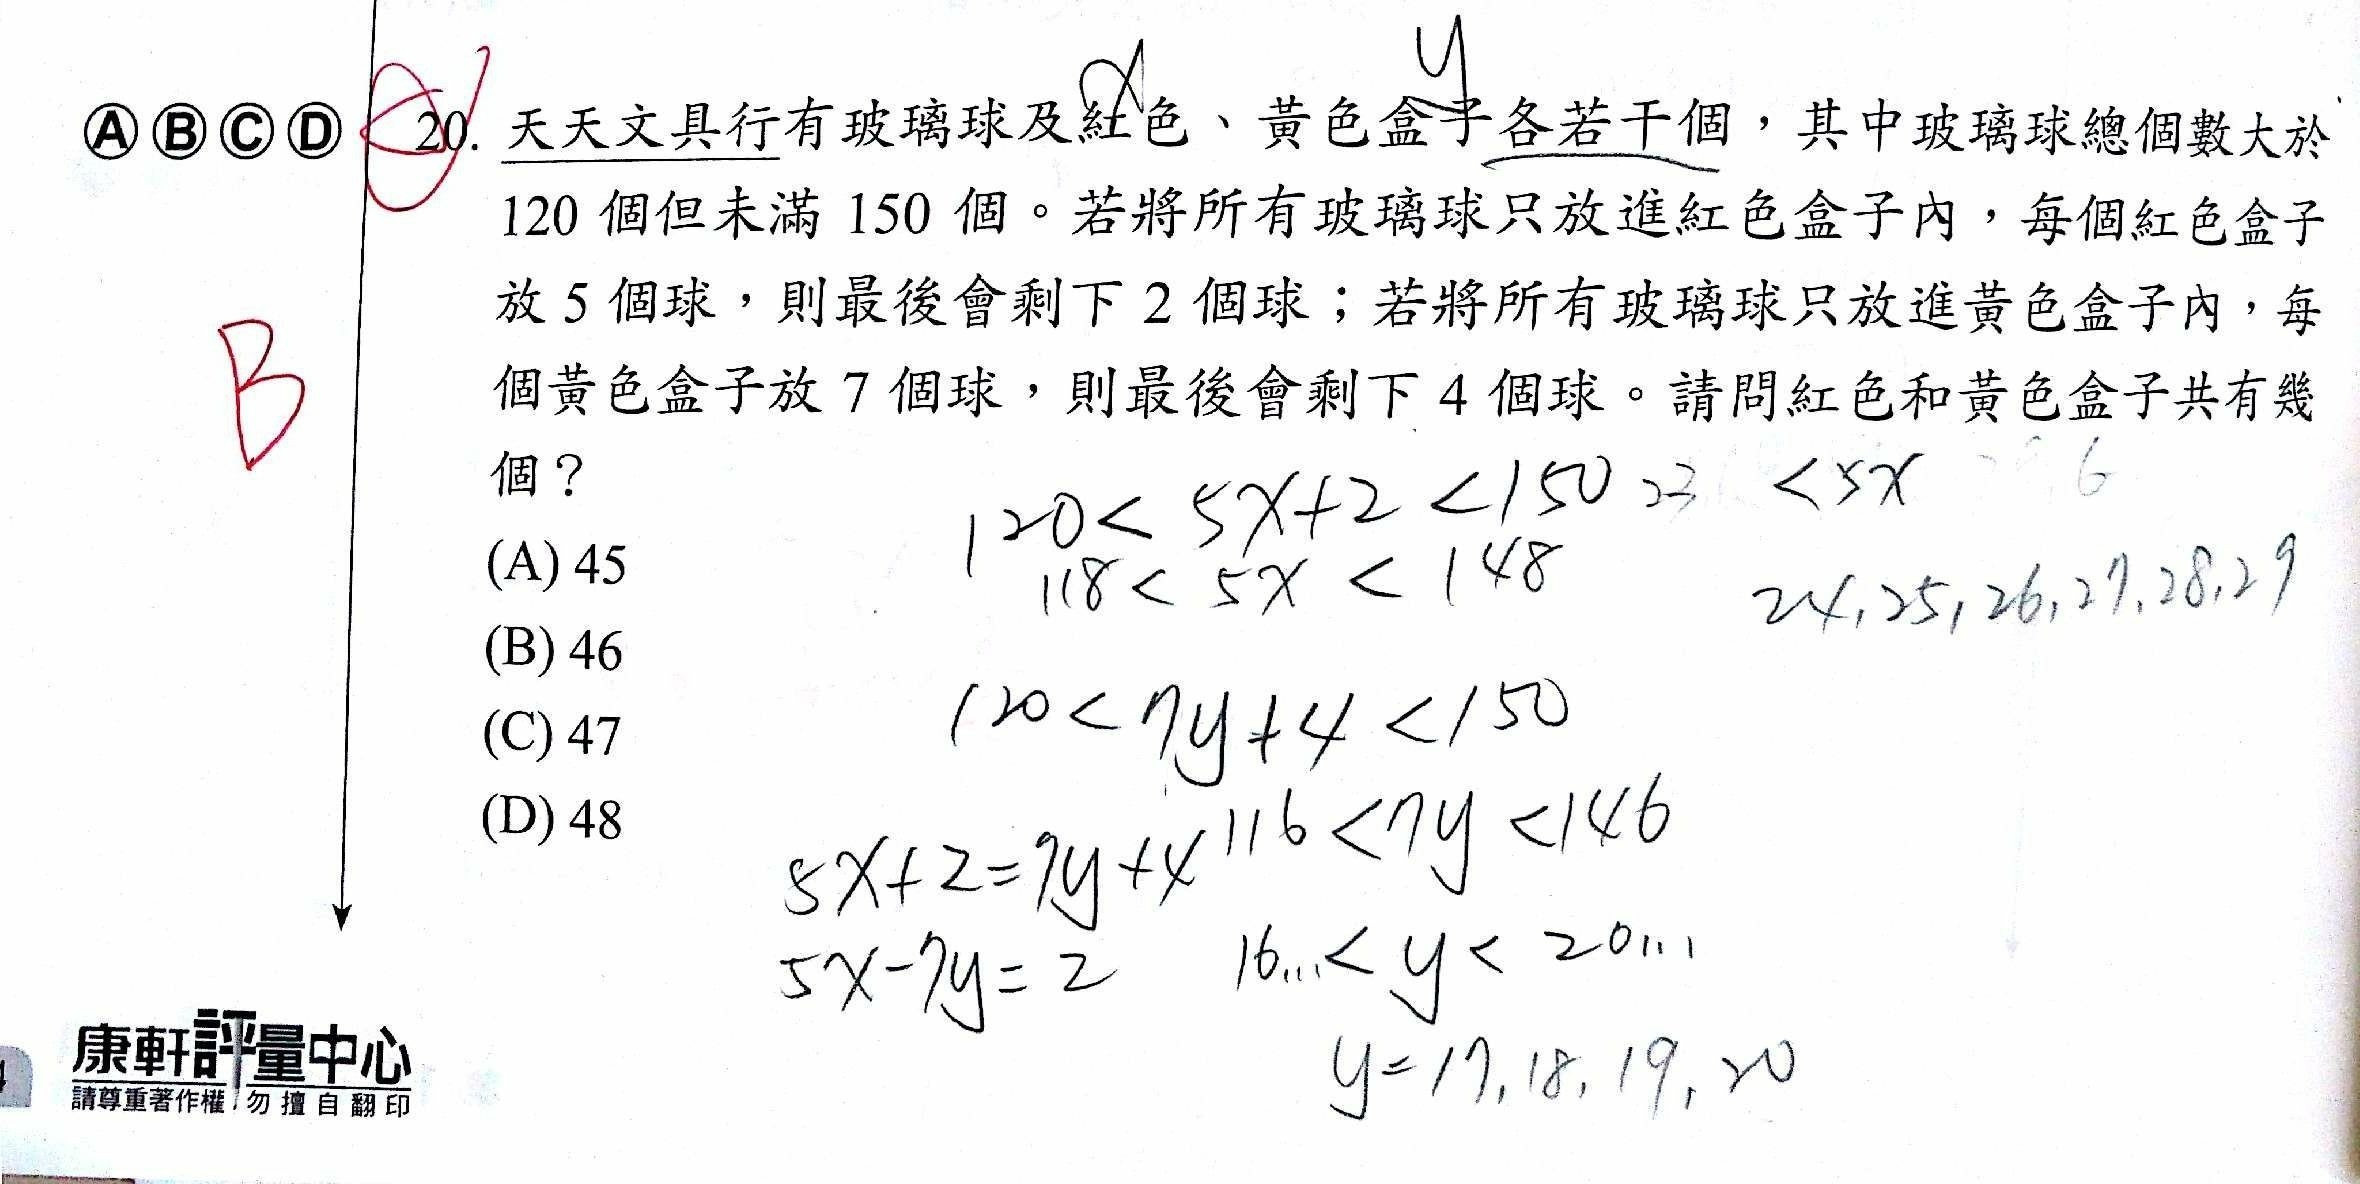 x y
ⒶⒷⒸⒹ 20. 天天文具行有玻璃球及紅色、黃色盒子各若干個，其中玻璃球總個數大於
120 個但未滿 150 個。若將所有玻璃球只放進紅色盒子內，每個紅色盒子
放 5 個球，則最後會剩下 2 個球；若將所有玻璃球只放進黃色盒子內，每
B
個黃色盒子放 7 個球，則最後會剩下 4 個球。請問紅色和黃色盒子共有幾
個？
120 < 5x+2 < 150
23 < 5x 6
(A) 45
118 < 5x < 148
24, 25, 26, 27, 28, 29
(B) 46
(C) 47
120 < 7y+4 < 150
(D) 48
116 < 7y < 146
5x+2=7y+4
5x-7y=2
16... < y < 20...
y=17, 18, 19, 20
康軒評量中心
請尊重著作權 勿擅自翻印